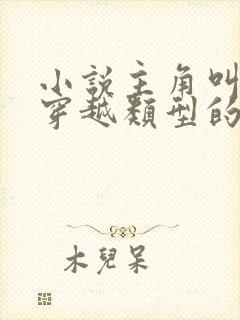 小說主角叫
穿越類型的
木兒呆